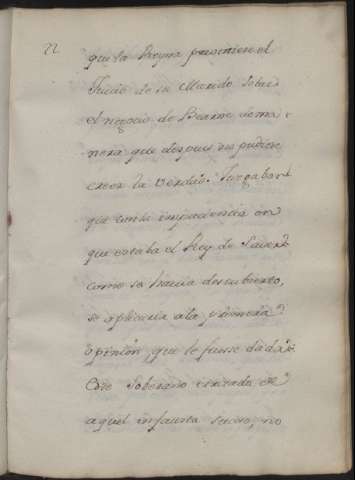 22
que la Reyna previniere el
Juicio de su Marido sobre
el negocio de Bearne de ma-
nera que despues no pudiese
creer la verdad. Juzgabase
que con la impaciencia en
que estaba el Rey de
como se havia descubierto,
se aplicaria a la primera
opinion, que le fuese dada.
Este Soberano de
aquel infausto, no